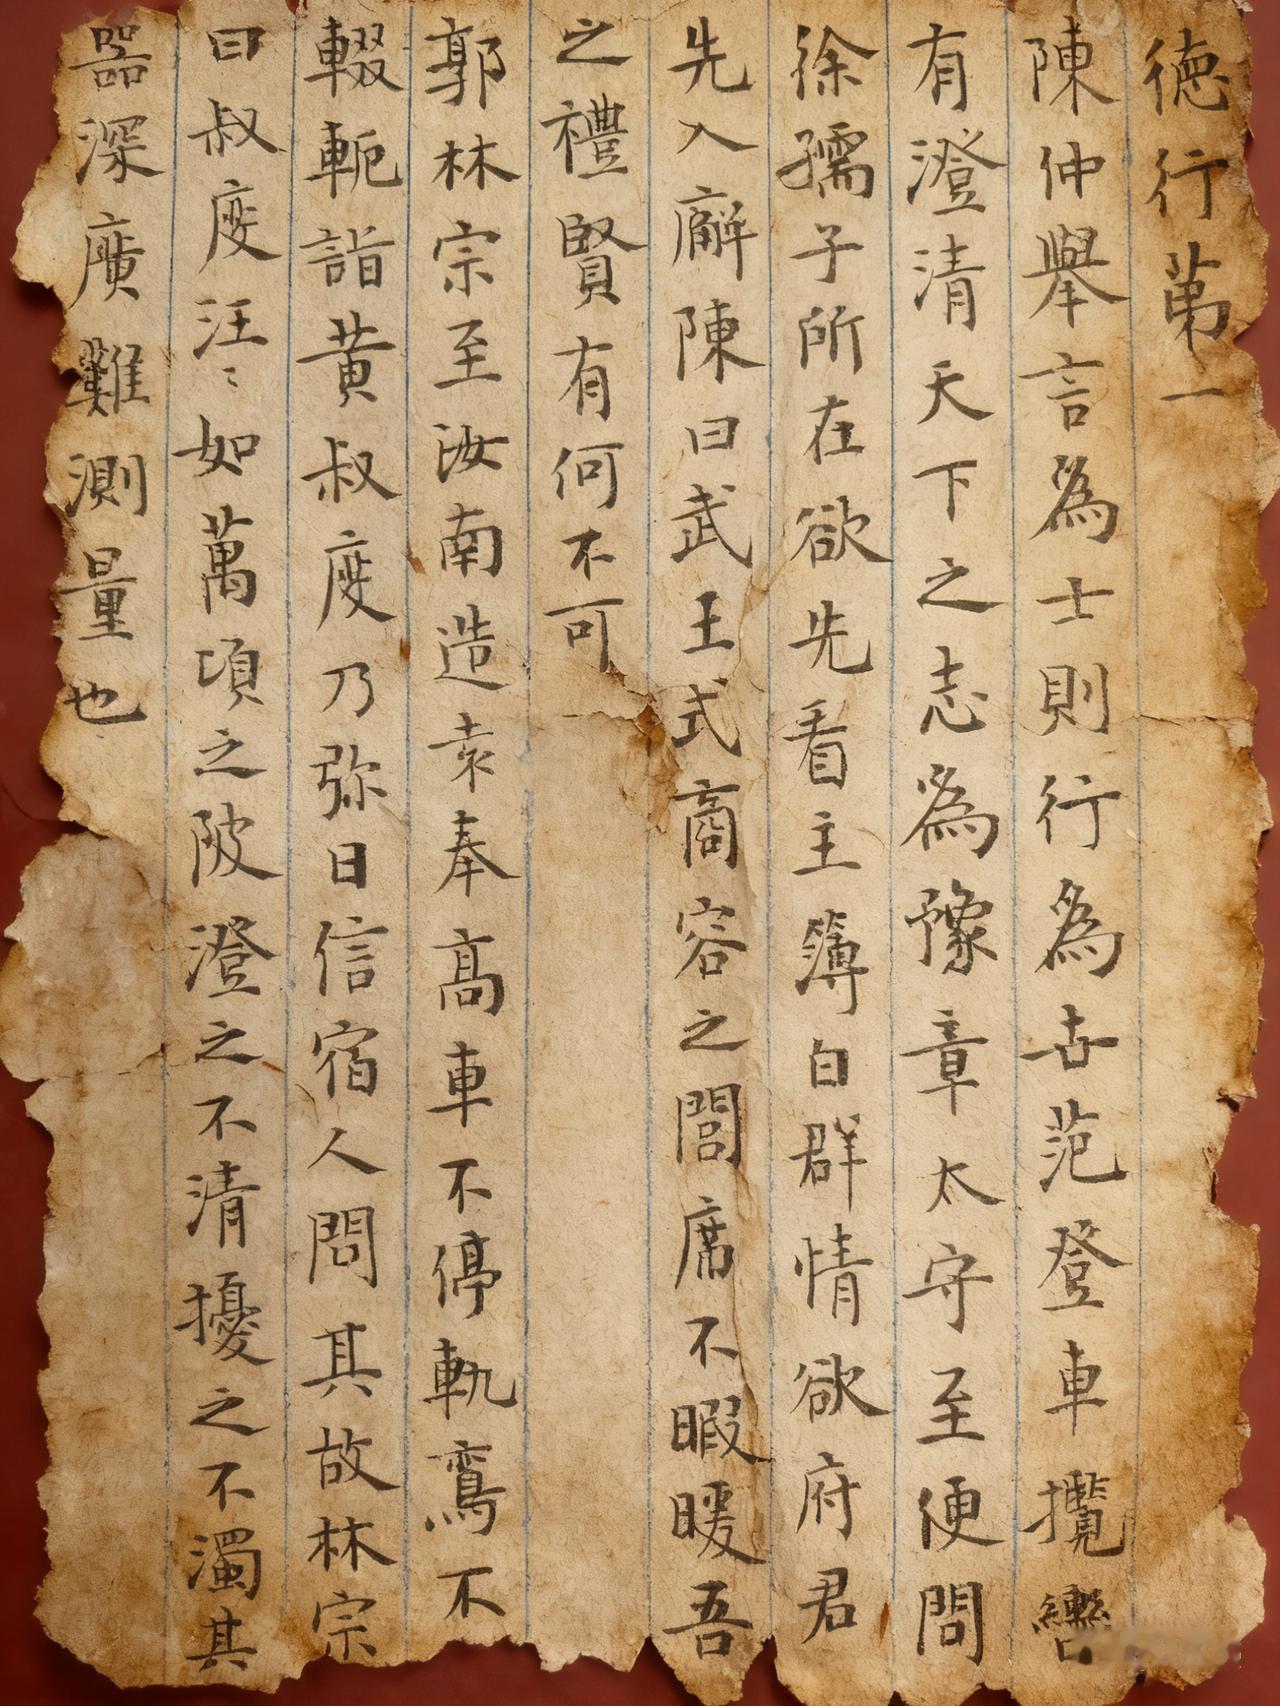 徳行苐一
陳仲舉言為士則行為世范登車攬轡
有澄清天下之志為豫章太守至便問
徐孺子所在欲先看主簿白群情欲府君
先入廨陳曰武王式商容之閭席不暇暖吾
之禮賢有何不可
郭林宗至汝南造袁奉高車不停軌鸞不
輟軛詣黄叔度乃弥日信宿人問其故林宗
曰叔度汪〻如萬頃之陂澄之不清擾之不濁其
器深廣難測量也